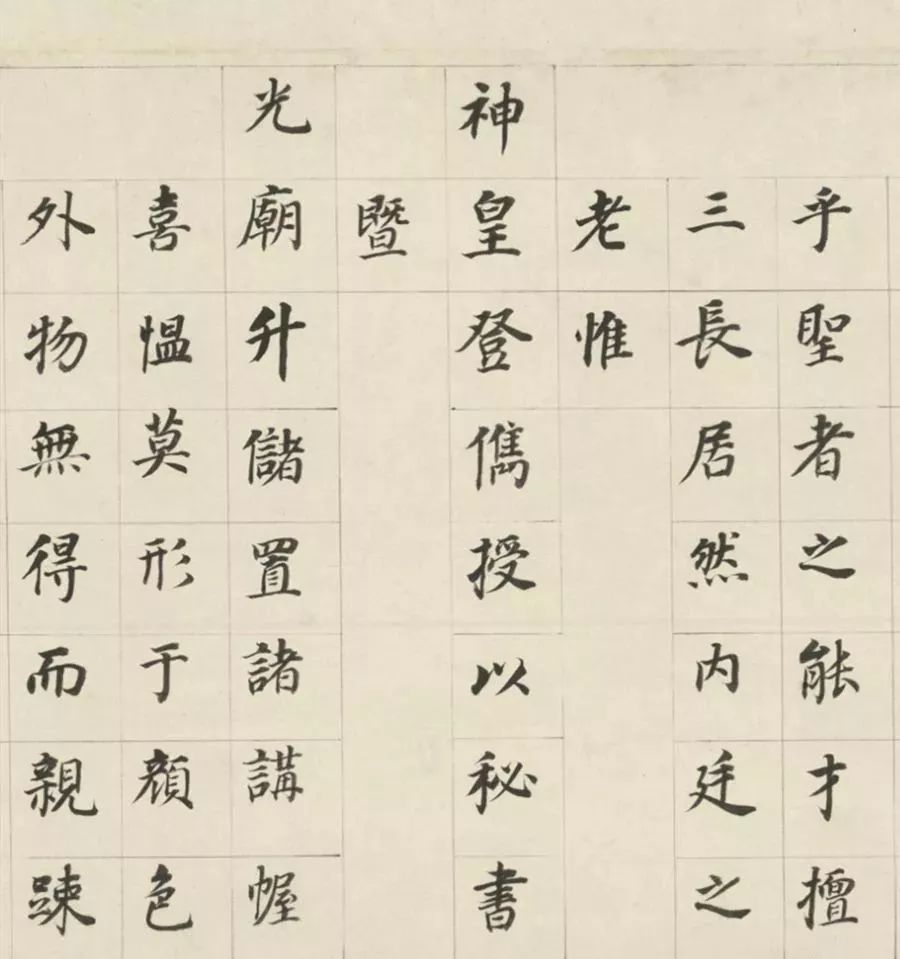 乎聖者之能才擅
三長居然内廷之
老惟
神皇登儁授以秘書
暨
光廟升儲置諸講幄
喜愠莫形于顔色
外物無得而親踈